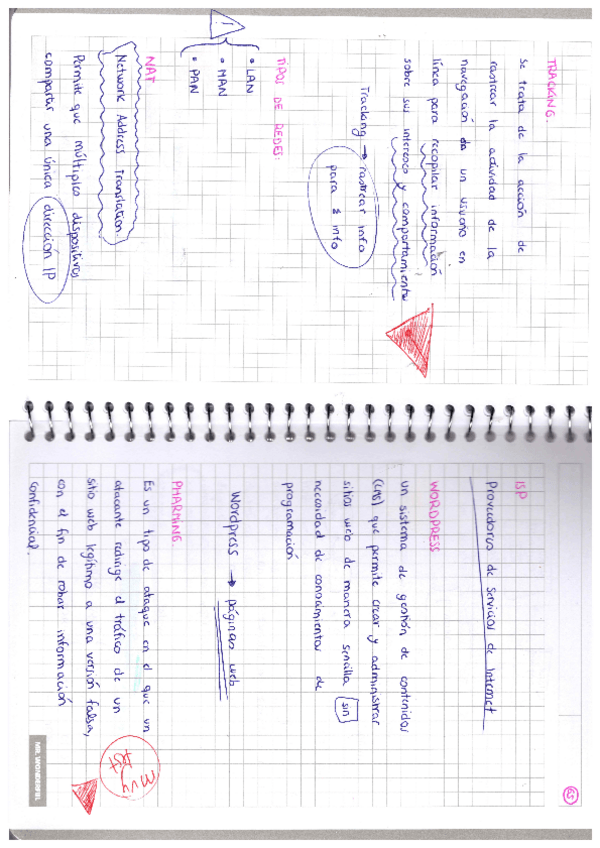 TRACKING.
Se trata de la acción de
rastrear la actividad de la
navegación de un usuario en
línea para recopilar información
sobre sus intereses y comportamiento
Tracking → rastrear info
para info
TIPOS DE REDES:
• LAN
• MAN
• PAN
!
NAT
Network Address Translation.
Permite que múltiples dispositivos
compartir una única dirección IP
65
ISP
Proveedores de Servicios de Internet
WORDPRESS
un sistema de gestión de contenidos
(CMS) que permite crear y administrar
sitios web de manera sencilla sin
necesidad de conocimientos de
programación
Wordpress → páginas web
PHARMING.
Es un tipo de ataque en el que un
atacante redirige el tráfico de un
sitio web legítimo a una versión falsa,
con el fin de robar información
confidencial.
muy
test
MR. WONDERFUL